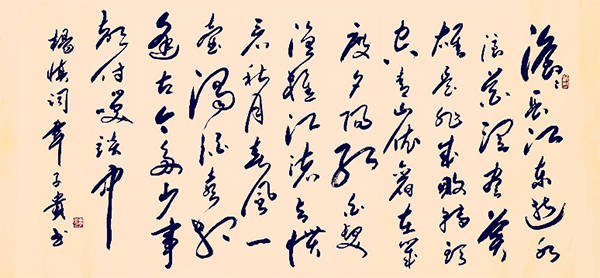 滚滚长江东逝水
浪花淘尽英
雄是非成败转头
空青山依旧在几
度夕阳红白发
渔樵江渚上惯
看秋月春风一
壶浊酒喜相
逢古今多少事
都付笑谈中
杨慎词 韦子贵书